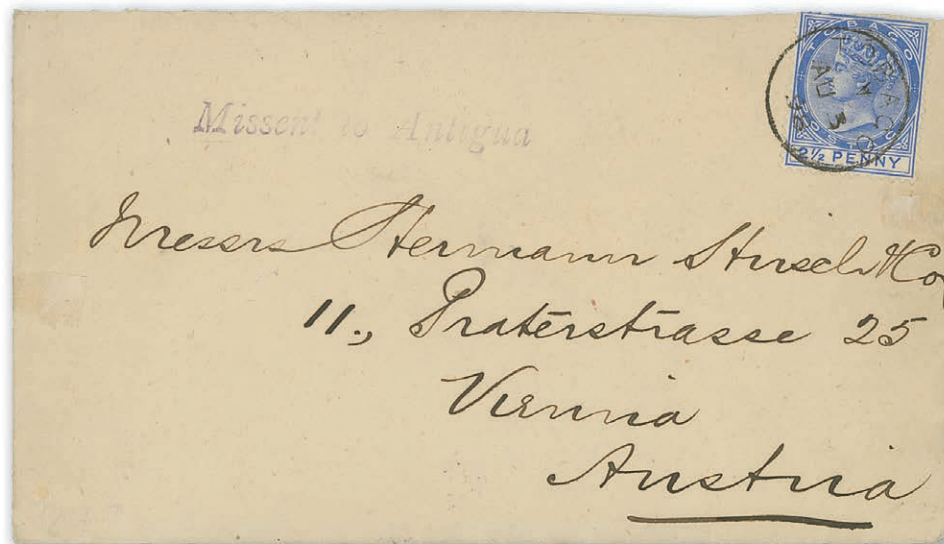 TOBAGO
POSTAGE
2½ PENNY
TOBAGO
AU 5
96
Missent to Antigua
Messrs Hermann Hirsch & Co,
11., Praterstrasse 25
Vienna
Austria